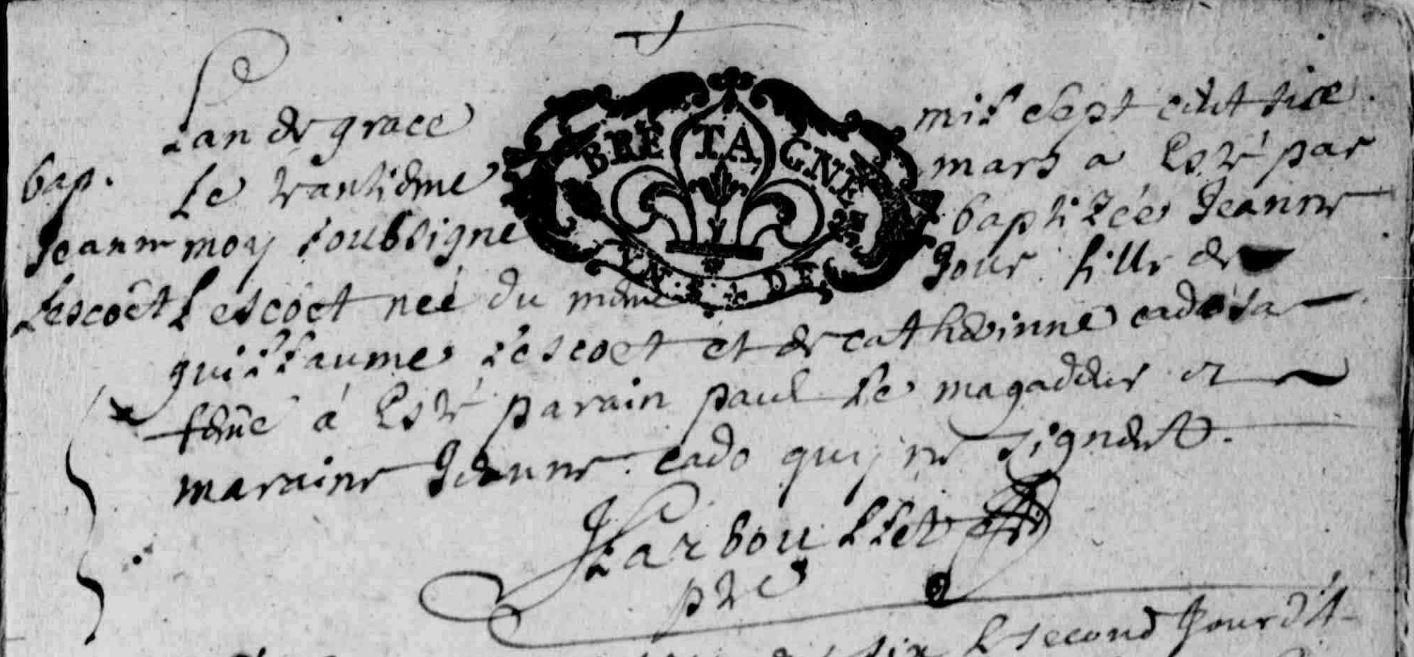 Lan de grace mil sept cent six
bap. Le vantieme mars a Esté par
Jeanne moy soubsigne baptizée Jeanne
Lescoêt Lescoet neé du mesme Jour fille de
guillaume Lescoet et de catherinne cado sa
feme à Esté parain paul Le magadeur et
maraine Jeanne cado quy ne signent.
BRETAGNE
DE
pre
six Le second Jour dit